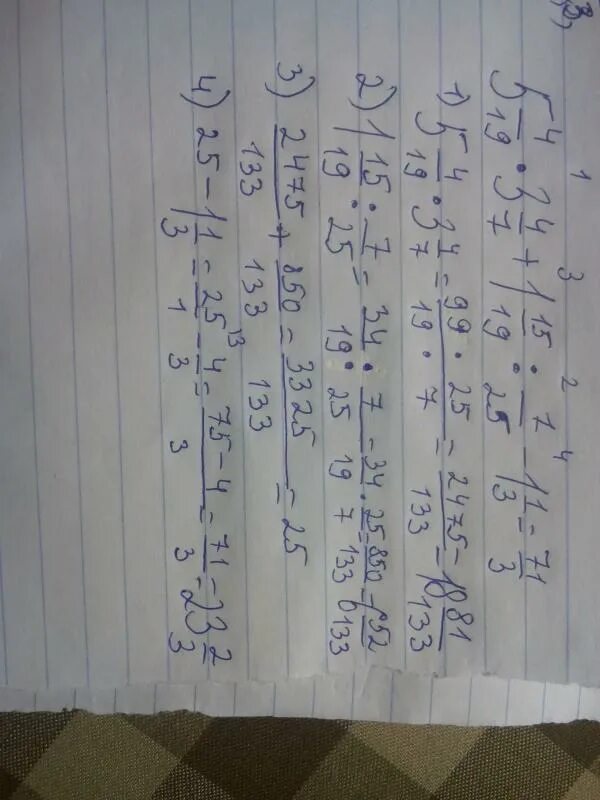 5 4/19 · 3 4/7 + 1 15/19 : 7/25 - 1 1/3 = 71/3
1 3 2 4
1) 5 4/19 · 3 4/7 = 99/19 · 25/7 = 2475/133 = 18 81/133
2) 1 15/19 : 7/25 = 34/19 : 7/25 = 34/19 · 25/7 = 850/133 = 6 52/133
3) 2475/133 + 850/133 = 3325/133 = 25
4) 25 - 1 1/3 = 25/1 - 4/3 = 75-4/3 = 71/3 = 23 2/3